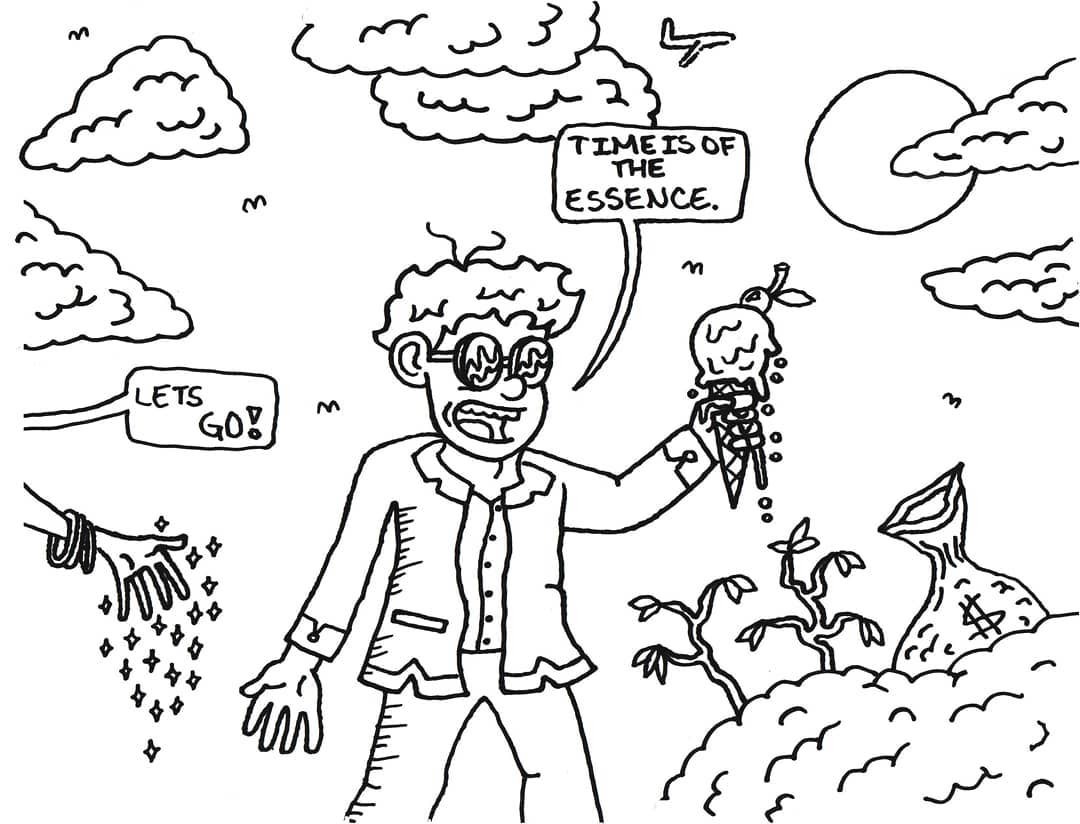 TIME IS OF
THE
ESSENCE.
LETS
GO!
$